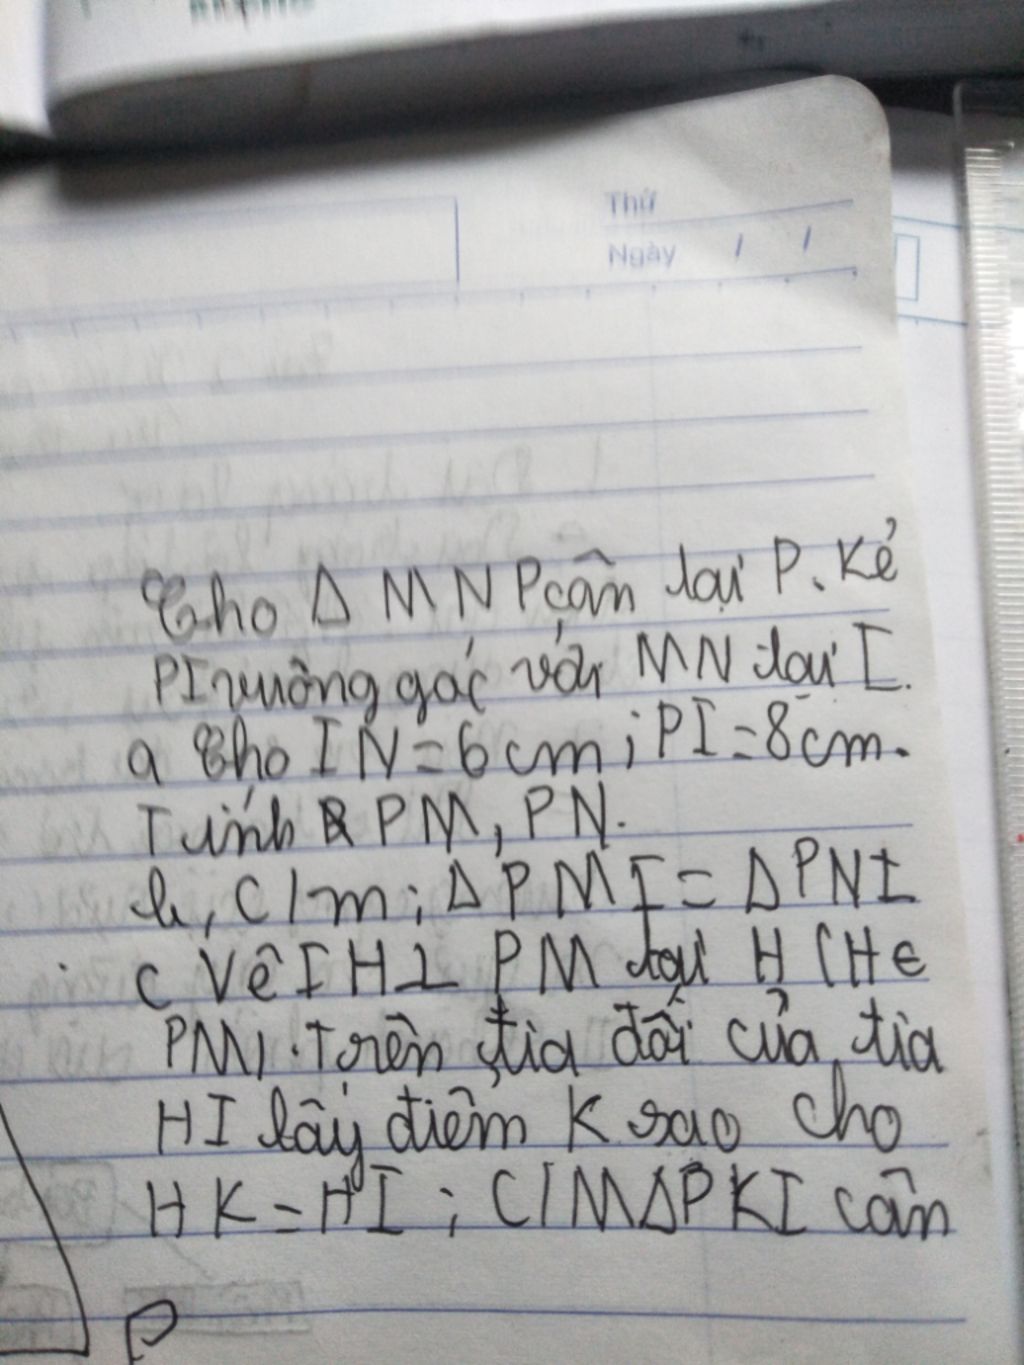 Thứ
Ngày / /
Cho Δ MNP cân tại P. Kẻ
PI vuông góc với MN tại I.
a Cho IN=6cm; PI=8cm.
Tính PM, PN.
b, C/m; Δ PMI = Δ PNI
c Vẽ IH⊥ PM tại H (H∈
PM). Trên tia đối của tia
HI lấy điểm K sao cho
HK=HI; C/M Δ PKI cân
P